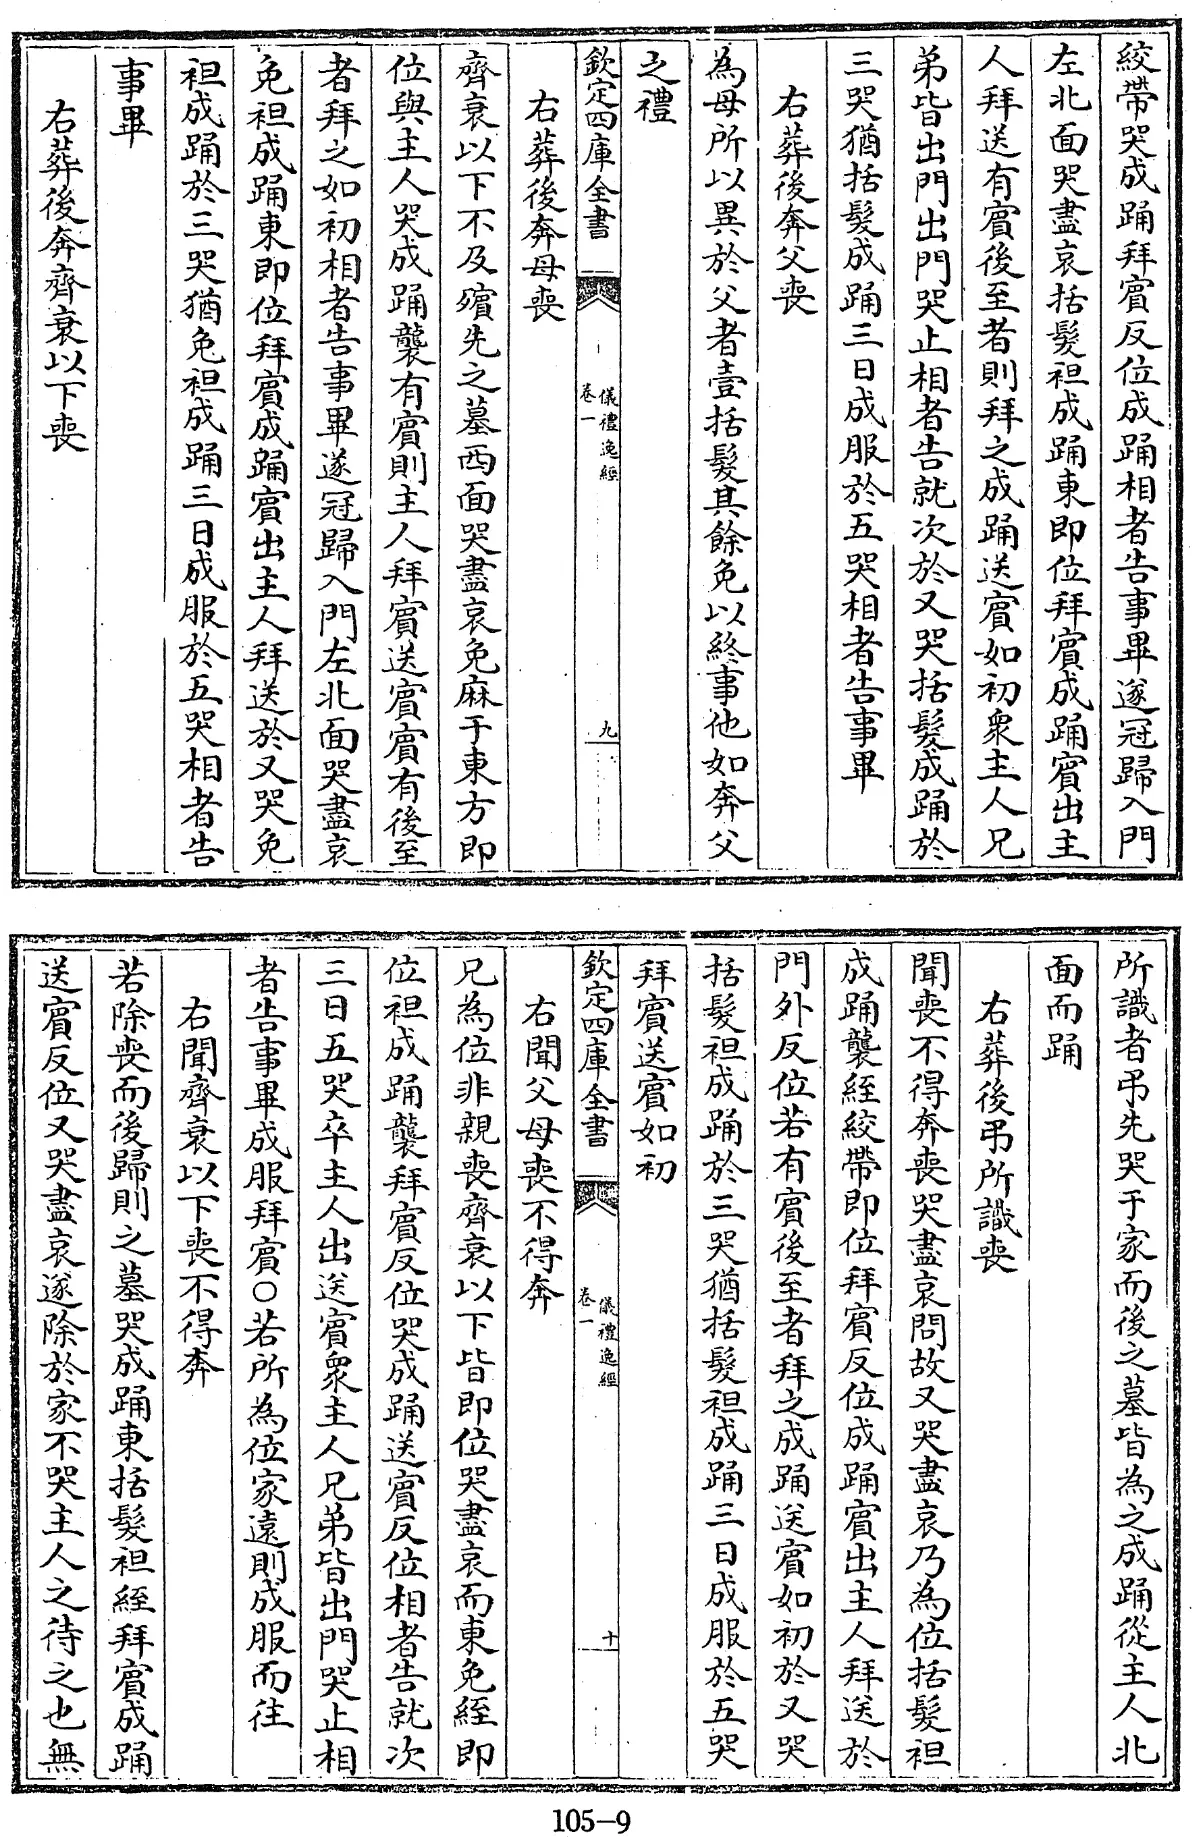 絞帶哭成踊拜賓反位成踊相者告事畢遂冠歸入門
左北面哭盡哀括髮袒成踊東即位拜賓成踊賓出主
人拜送有賓後至者則拜之成踊送賓如初衆主人兄
弟皆出門出門哭止相者告就次於又哭括髮成踊於
三哭猶括髮成踊三日成服於五哭相者告事畢
右葬後奔父喪
為母所以異於父者壹括髮其餘免以終事他如奔父
之禮
欽定四庫全書
儀禮逸經
卷一
九
右葬後奔母喪
齊衰以下不及殯先之墓西面哭盡哀免麻于東方即
位與主人哭成踊襲有賓則主人拜賓送賓賓有後至
者拜之如初相者告事畢遂冠歸入門左北面哭盡哀
免袒成踊東即位拜賓成踊賓出主人拜送於又哭免
袒成踊於三哭猶免袒成踊三日成服於五哭相者告
事畢
右葬後奔齊衰以下喪
所識者弔先哭于家而後之墓皆為之成踊從主人北
面而踊
右葬後弔所識喪
聞喪不得奔喪哭盡哀問故又哭盡哀乃為位括髮袒
成踊襲絰絞帶即位拜賓反位成踊賓出主人拜送於
門外反位若有賓後至者拜之成踊送賓如初於又哭
括髮袒成踊於三哭猶括髮袒成踊三日成服於五哭
拜賓送賓如初
欽定四庫全書
儀禮逸經
卷一
十
右聞父母喪不得奔
兄為位非親喪齊衰以下皆即位哭盡哀而東免絰即
位袒成踊襲拜賓反位哭成踊送賓反位相者告就次
三日五哭卒主人出送賓衆主人兄弟皆出門哭止相
者告事畢成服拜賓○若所為位家遠則成服而往
右聞齊衰以下喪不得奔
若除喪而後歸則之墓哭成踊東括髮袒絰拜賓成踊
送賓反位又哭盡哀遂除於家不哭主人之待之也無
105-9